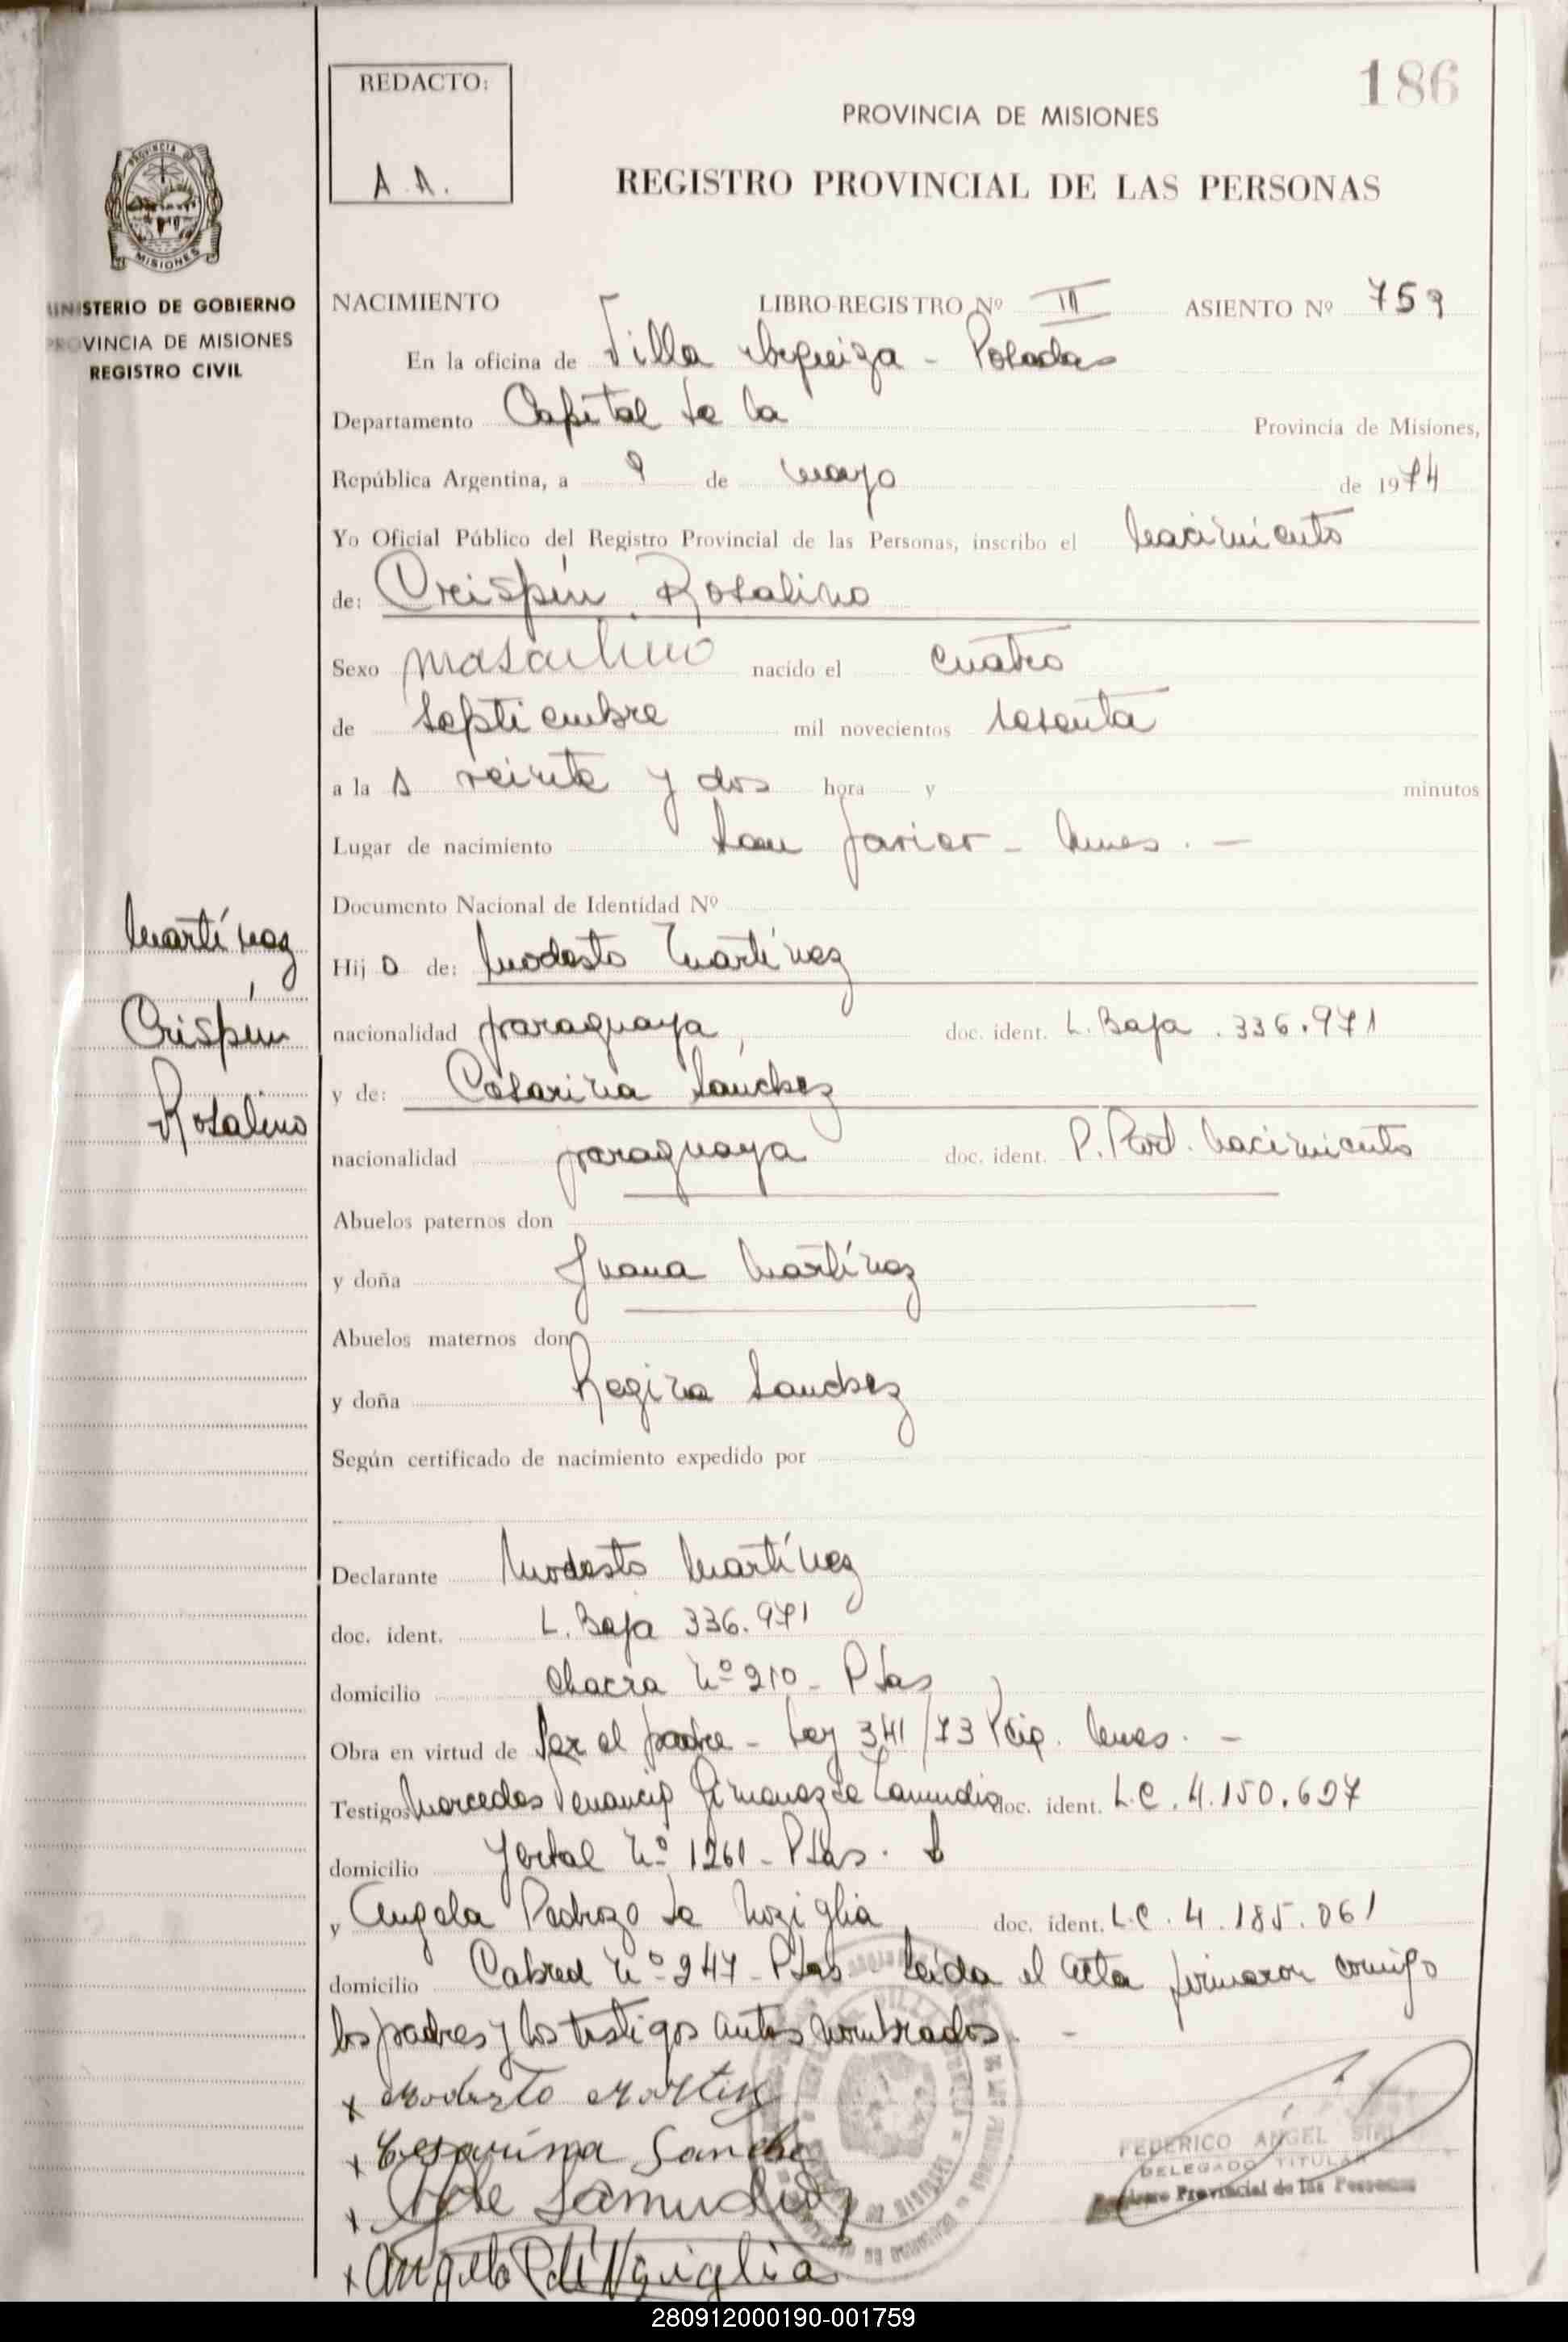 186
REDACTO:
A.A.
PROVINCIA DE MISIONES
REGISTRO PROVINCIAL DE LAS PERSONAS
PROVINCIA DE
MISIONES
MINISTERIO DE GOBIERNO
PROVINCIA DE MISIONES
REGISTRO CIVIL
NACIMIENTO LIBRO-REGISTRO Nº III ASIENTO Nº 759
En la oficina de Villa Urquiza - Posadas
Departamento Capital de la Provincia de Misiones,
República Argentina, a 9 de mayo de 1974
Yo Oficial Público del Registro Provincial de las Personas, inscribo el nacimiento
de: Crispín Rosalino
Sexo masculino nacido el cuatro
de septiembre mil novecientos sesenta
a la s veinte y dos hora y minutos
Lugar de nacimiento San Javier - Mnes. -
Documento Nacional de Identidad Nº
Martínez
Crispín
Rosalino
Hij o de: Modesto Martínez
nacionalidad paraguaya, doc. ident. L. Baja. 336.971
y de: Cesarina Sanchez
nacionalidad paraguaya doc. ident. P. Part. Nacimiento
Abuelos paternos don
y doña Juana Martínez
Abuelos maternos don
y doña Regina Sanchez
Según certificado de nacimiento expedido por
Declarante Modesto Martínez
doc. ident. L. Baja 336.971
domicilio Chacra Nº 210 - Pdas
Obra en virtud de Ser el padre - Ley 341/73 Pcia. Mnes. -
Testigos Mercedes Venancia Gimenez de Zamudio doc. ident. L.C. 4.150.697
domicilio Nº 1261 - Pdas.
y Angela Pedrozo de doc. ident. L.C. 4.185.061
domicilio Cabred Nº 247 - Pdas Leida el acta firmaron conmigo
los padres y los testigos antes nombrados. -
x Modesto Martinez
x Cesarina Sanchez
x de Samudio
x Angela P. de
FEDERICO ÁNGEL
DELEGADO TITULAR
Registro Provincial de las Personas
280912000190-001759